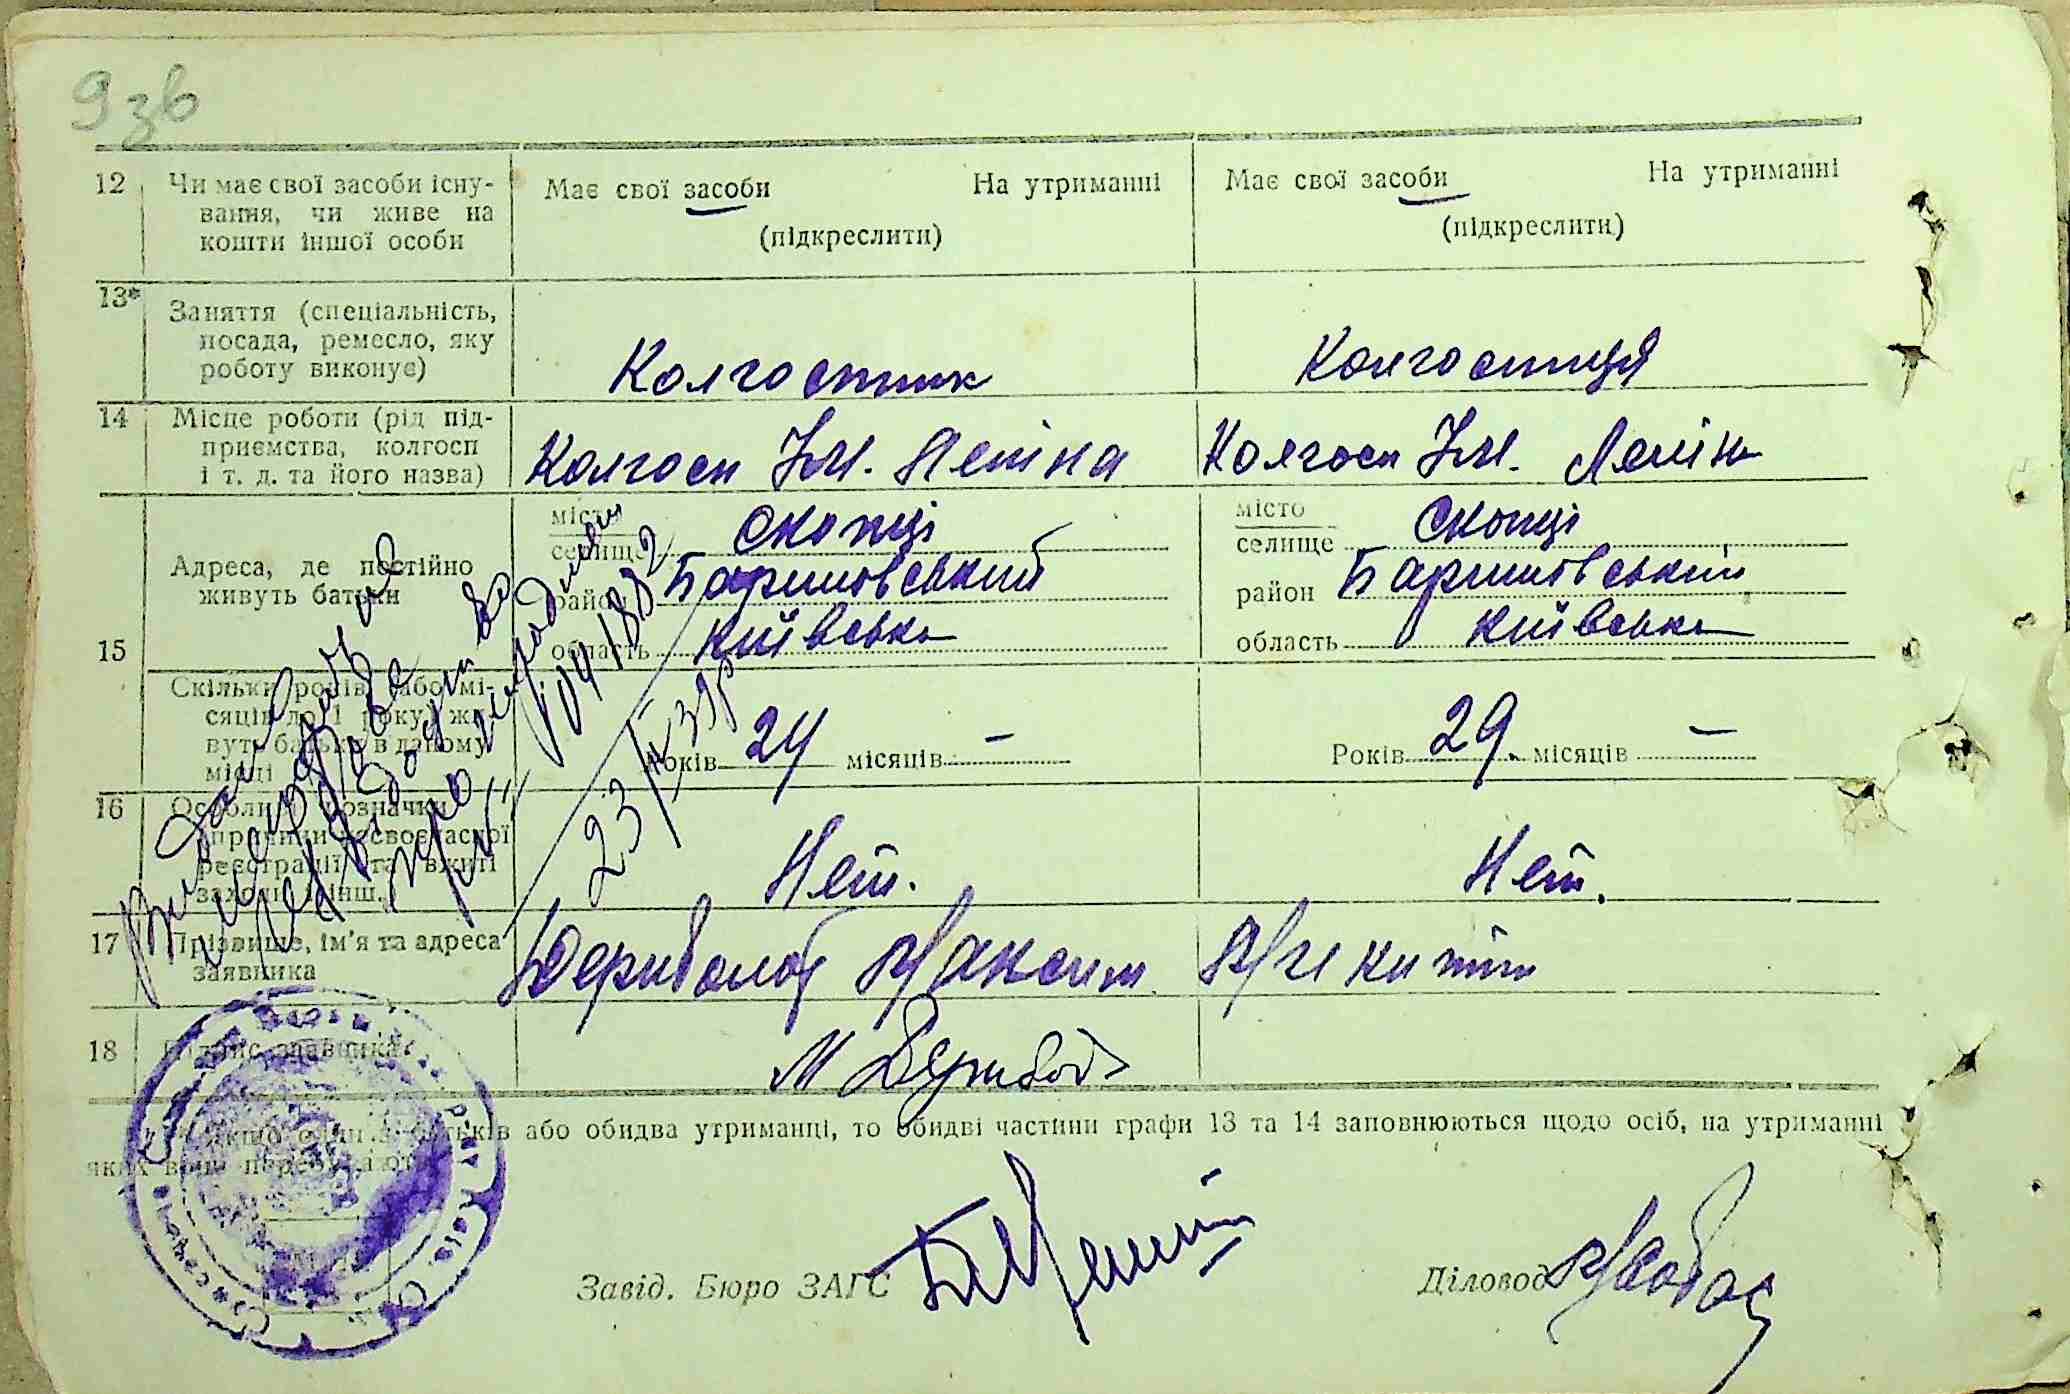 9 зв
12 Чи має свої засоби існу- Має свої засоби На утриманні Має свої засоби На утриманні
вання, чи живе на (підкреслити) (підкреслити)
кошти іншої особи
13* Заняття (спеціальність,
посада, ремесло, яку
роботу виконує) Колгоспник Колгоспиця
14 Місце роботи (рід під-
приємства, колгосп Колгосп Ім. Леніна Колгосп Ім. Леніна
і т. д. та його назва)
місто Скопці місто Скопці
селище селище
Адреса, де постійно район Баришовський район Баришовський
живуть батьки
15 область Київська область Київська
Скільки років (або мі-
сяців до 1 року) жи-
вуть батьки в даному Років 24 місяців — Років 29. місяців —
місці
16 Особливі позначки
причини несвоєчасної
реєстрації та вжиті Нет. Нет.
заходи інш.
23/IX 39р
17 Прізвище, ім'я та адреса Дериболот Максим Микитич
заявника
18 Підпис заявника М Дерибол
якщо один з батьків або обидва утриманці, то обидві частини графи 13 та 14 заповнюються щодо осіб, на утриманні
яких вони перебувають
Завід. Бюро ЗАГС
Діловод